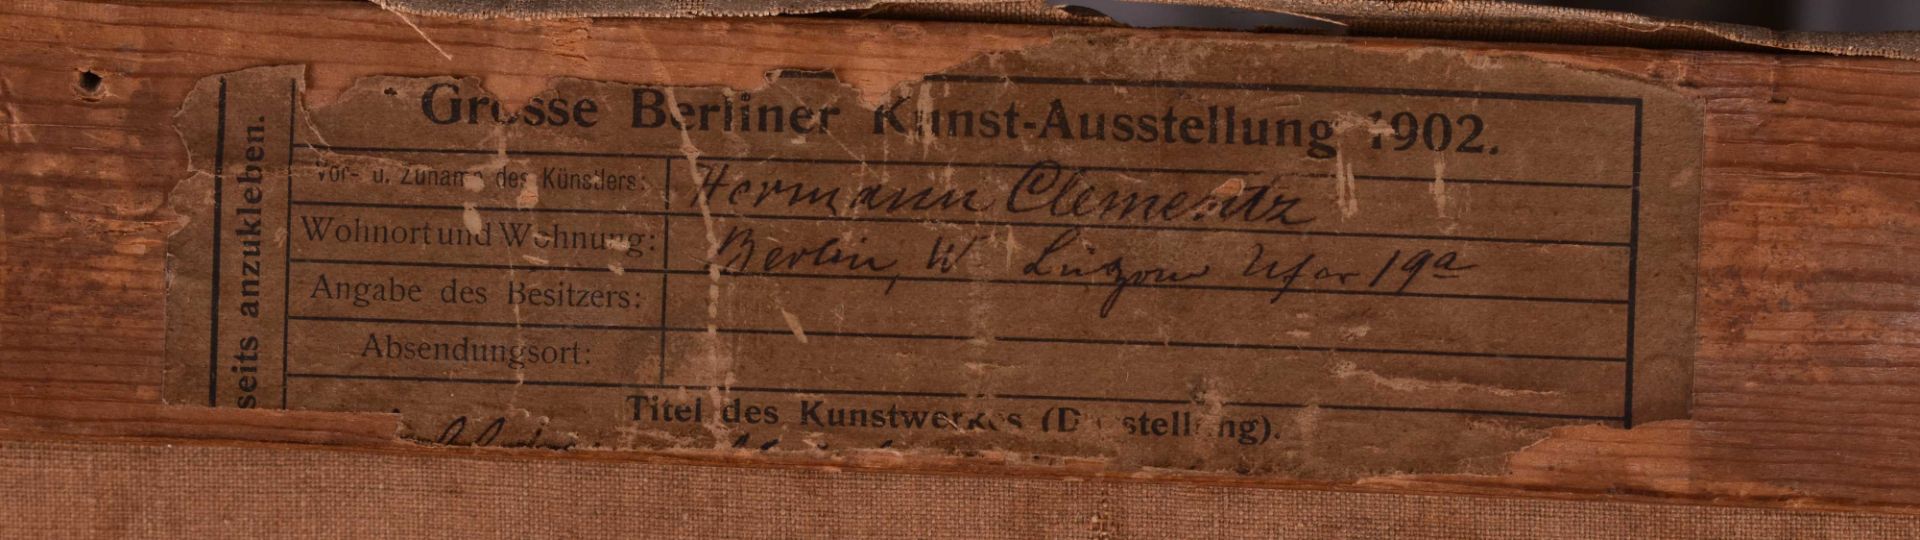 Grosse Berliner Kunst-Ausstellung 1902.
Vor- u. Zuname des Künstlers: Hermann Clementz
Wohnort und Wohnung: Berlin, W Lützow Ufer 19a
Angabe des Besitzers:
Absendungsort:
Titel des Kunstwerkes (Darstellung).
seits anzukleben.